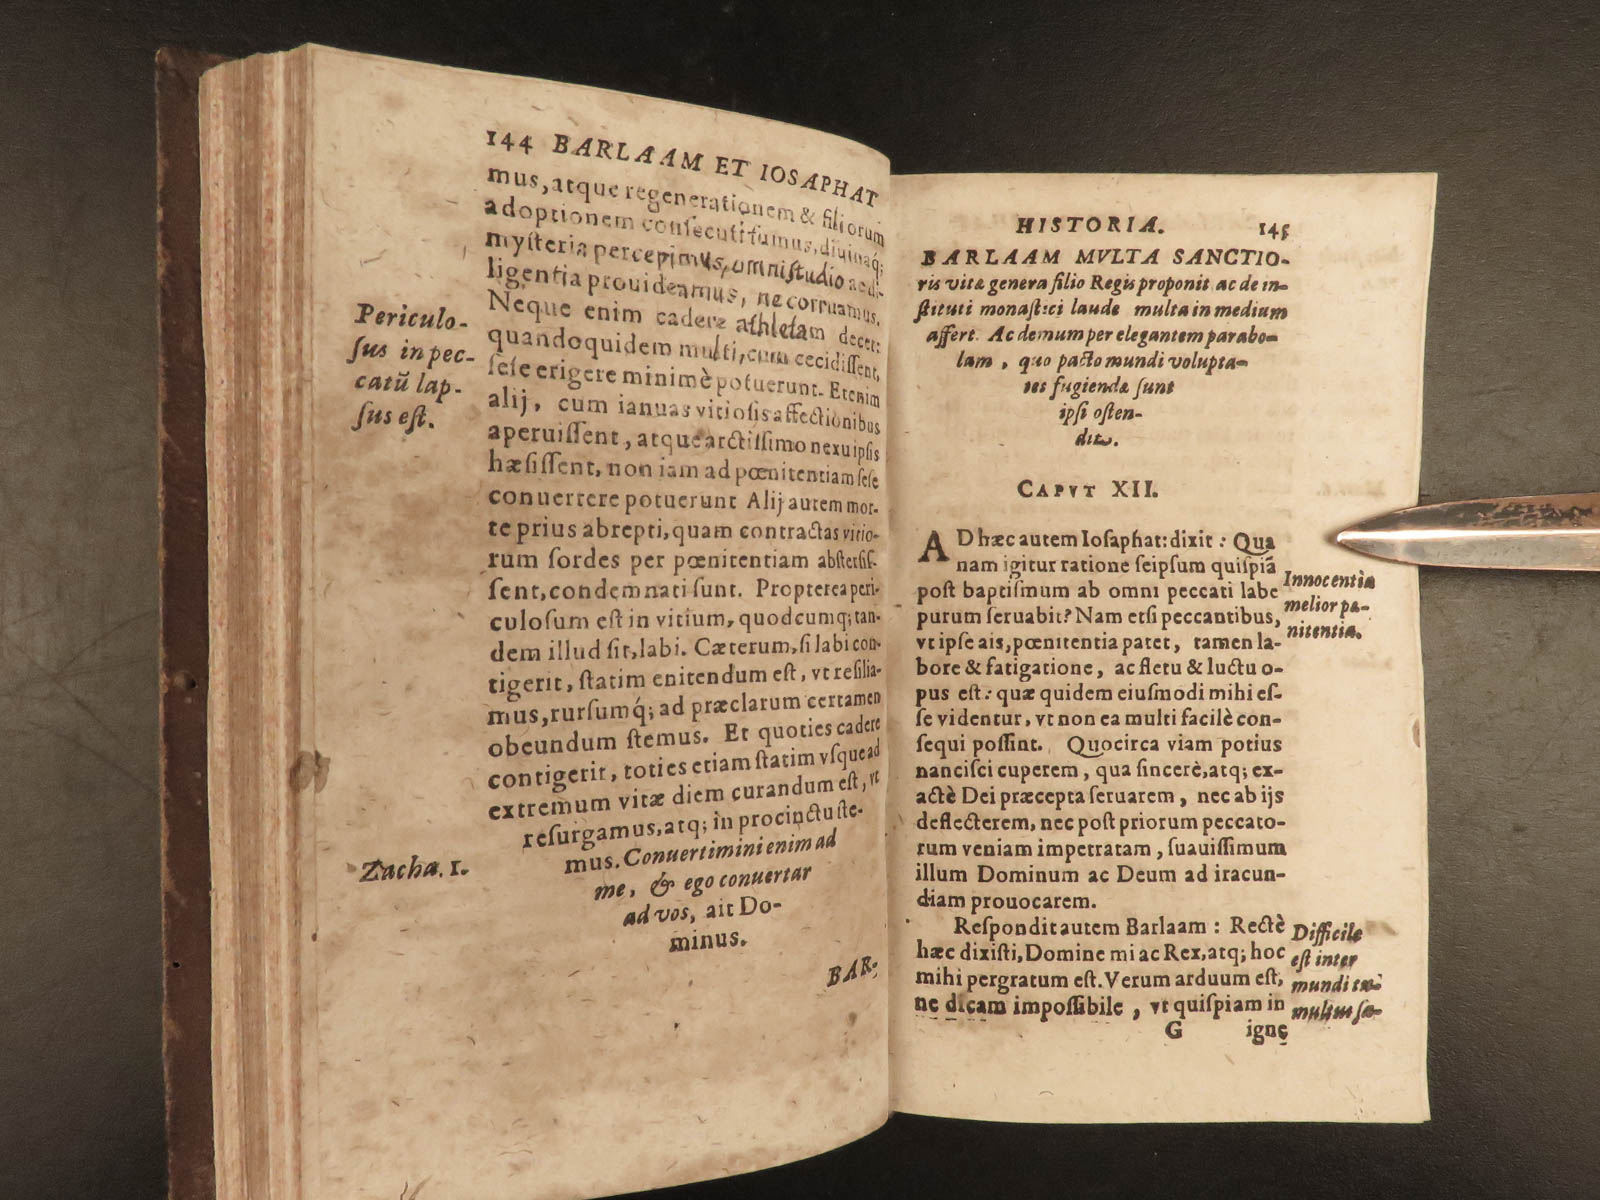 144 BARLAAM ET IOSAPHAT
mus, atque regenerationem & filiorum
adoptionem consecuti sumus, diuinaq;
mysteria percepimus, omni studio ac di-
ligentia prouideamus, ne corruamus.
Neque enim cadere athletam decet:
quandoquidem multi, cum cecidissent,
sese erigere minimè potuerunt. Etenim
alij, cum ianuas vitiosis affectionibus
aperuissent, atque arctissimo nexu ipsis
hæsissent, non iam ad pœnitentiam sese
conuertere potuerunt Alij autem mor-
te prius abrepti, quam contractas vitio-
rum sordes per pœnitentiam abstersis-
sent, condemnati sunt. Propterea peri-
culosum est in vitium, quodcumq; tan-
dem illud sit, labi. Cæterum, si labi con-
tigerit, statim enitendum est, vt resilia-
mus, rursumq́; ad præclarum certamen
obeundum stemus. Et quoties cadere
contigerit, toties etiam statim vsque ad
extremum vitæ diem curandum est, vt
resurgamus, atq; in procinctu ste-
mus. Conuertimini enim ad
me, & ego conuertar
ad vos, ait Do-
minus.
BAR-
Periculo-
sus in pec-
catũ lap-
sus est.
Zacha. 1.
HISTORIA. 145
BARLAAM MVLTA SANCTIO-
ris vitæ genera filio Regis proponit ac de in-
stituti monastici laude multa in medium
affert. Ac demum per elegantem parabo-
lam, quo pacto mundi volupta-
tes fugiendæ sunt
ipsi osten-
dit.
CAPVT XII.
AD hæc autem Iosaphat: dixit: Qua
nam igitur ratione seipsum quispiã
post baptismum ab omni peccati labe
purum seruabit? Nam etsi peccantibus,
vt ipse ais, pœnitentia patet, tamen la-
bore & fatigatione, ac fletu & luctu o-
pus est: quæ quidem eiusmodi mihi es-
se videntur, vt non ea multi facilè con-
sequi possint. Quocirca viam potius
nancisci cuperem, qua sincerè, atq; ex-
actè Dei præcepta seruarem, nec ab ijs
deflecterem, nec post priorum peccato-
rum veniam impetratam, suauissimum
illum Dominum ac Deum ad iracun-
diam prouocarem.
Respondit autem Barlaam: Rectè
hæc dixisti, Domine mi ac Rex, atq; hoc
mihi pergratum est. Verum arduum est,
ne dicam impossibile, vt quispiam in
G igne
Innocentia
melior pæ-
nitentia.
Difficile
est inter
mundi tu-
multus sæ-